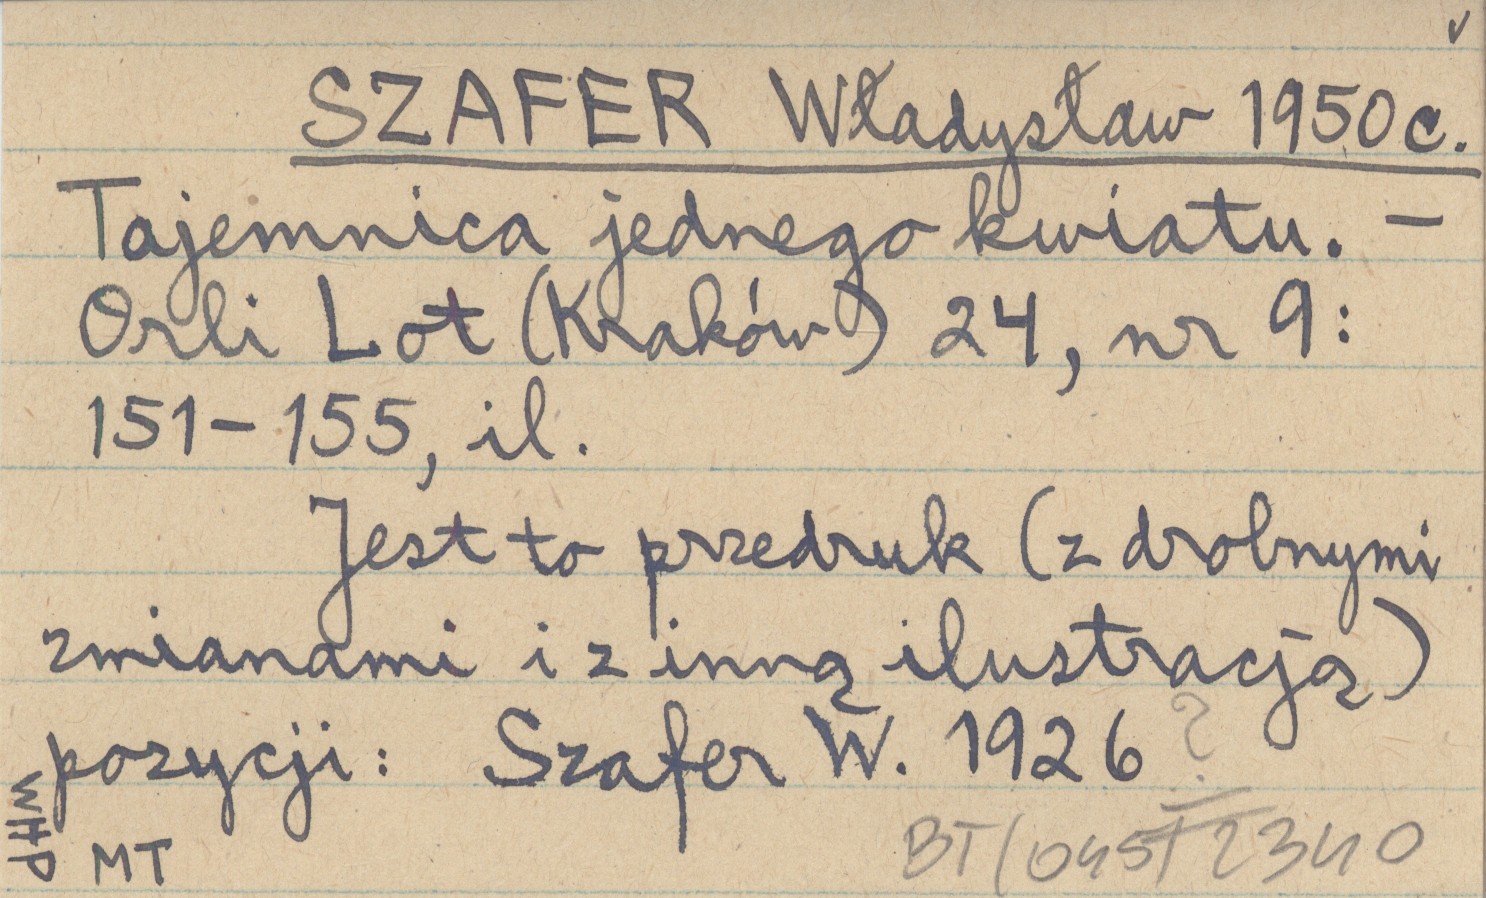 SZAFER Władysław 1950c.
Tajemnica jednego kwiatu. –
Orli Lot (Kraków) 24, nr 9:
151–155, il.
Jest to przedruk (z drobnymi
zmianami i z inną ilustracją)
pozycji: Szafer W. 1926 ?
WHP
MT